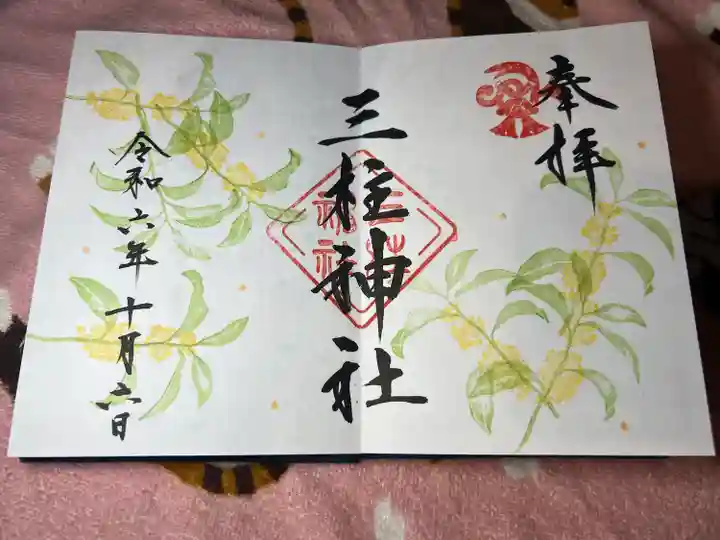 奉拝
三柱神社
三柱
神社
令和六年十月六日